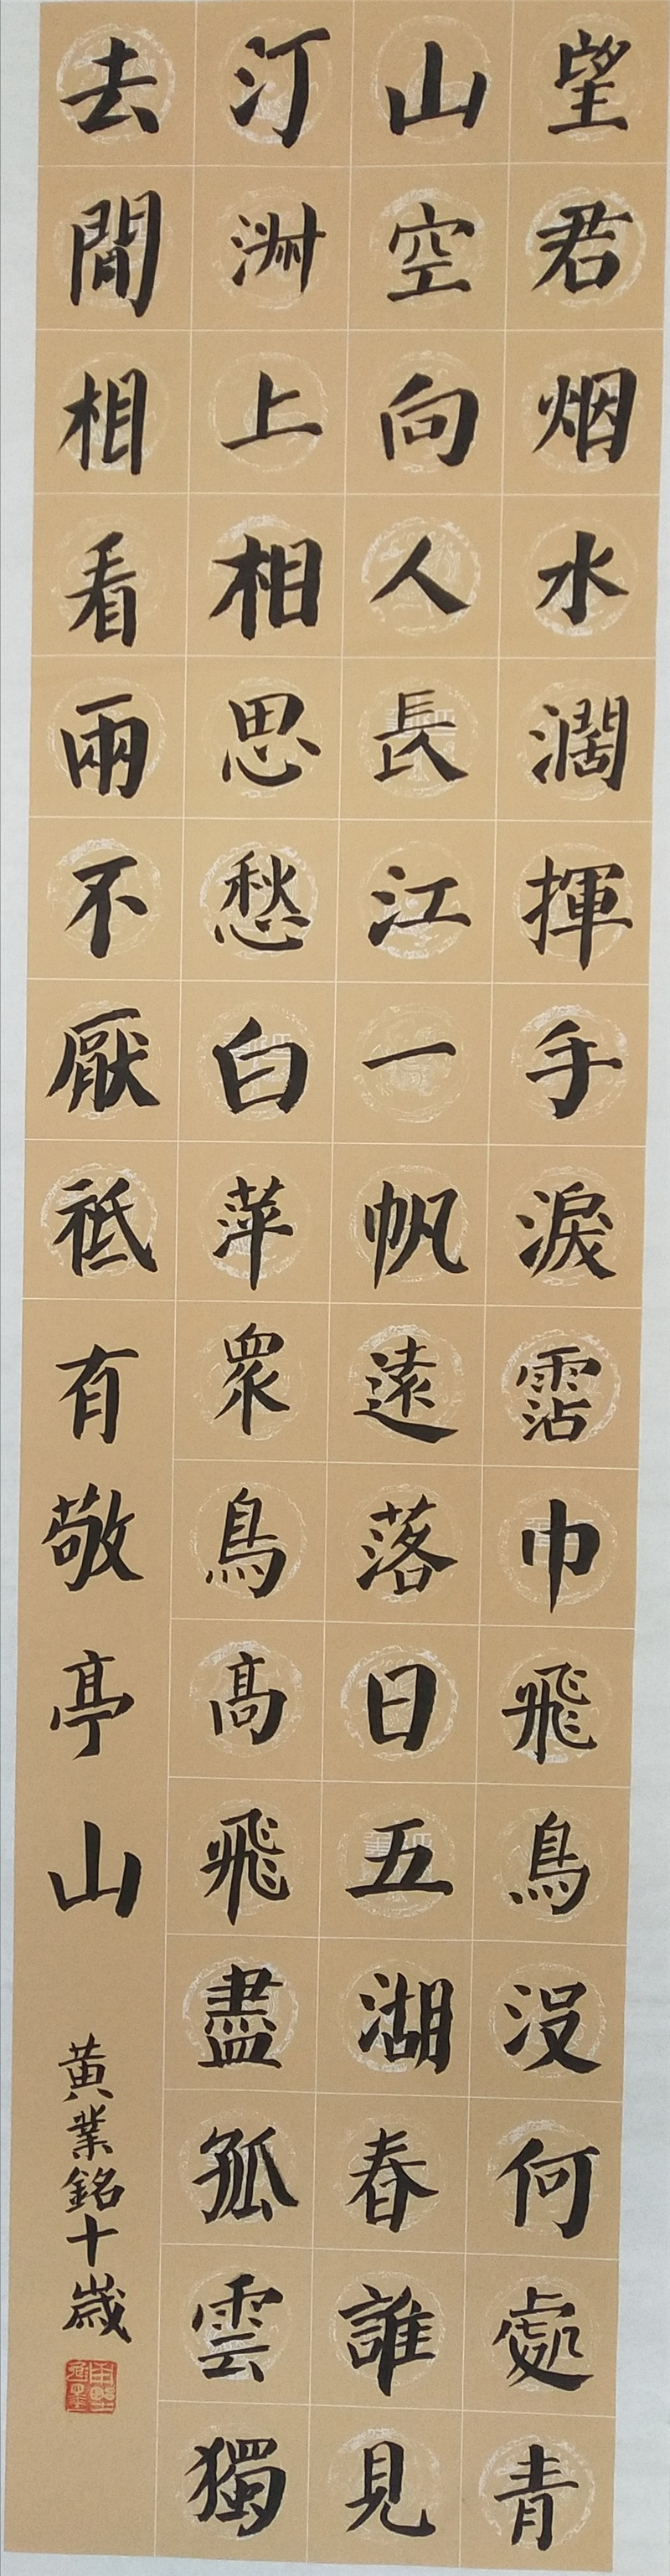 望君烟水濶揮手淚霑巾飛鳥没何處青
山空向人長江一帆遠落日五湖春誰見
汀洲上相思愁白蘋衆鳥高飛盡孤雲獨
去閒相看兩不厭祗有敬亭山
黄業銘十歲